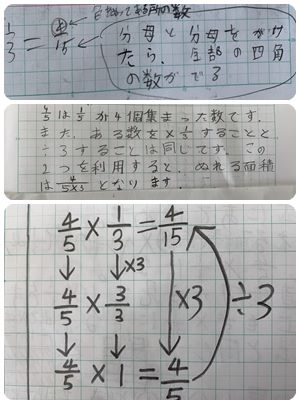 1/3 = 4/15
分母と分母をかけ
たら、全部の四角
の数がでる
4/5は1/5が4個集まった数です。
また、ある数を×1/3することと
÷3することは同じです。この
2つを利用すると、ぬれる面積
は4/5×3となります。
4/5 × 1/3 = 4/15
↓ ↓×3 ↓×3 ÷3
4/5 × 3/3
↓ ↓
4/5 × 1 = 4/5